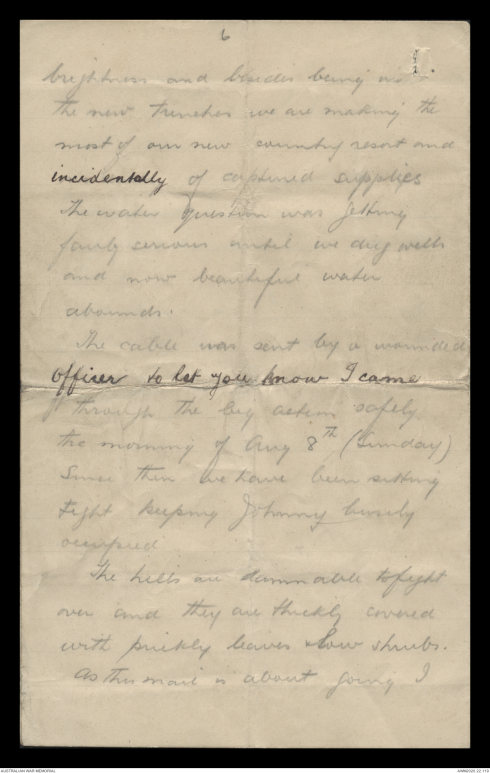 6
brightness and besides being in
the new trenches we are making the
most of our new country resort and
incidentally of captured supplies
The water question was getting
fairly serious until we dug wells
and now beautiful water
abounds.
The cable was sent by a wounded
officer to let you know I came
through the big action safely.
the morning of Aug 8th (Sunday)
Since then we have been sitting
tight keeping Johnny busily
occupied
The hills are damnable to fight
over and they are thickly covered
with prickly leaves & low shrubs.
As this mail is about going I
AUSTRALIAN WAR MEMORIAL